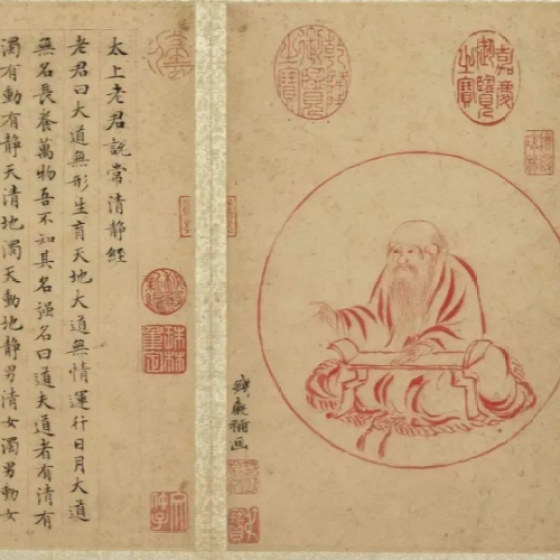 嘉慶御覽之寶
乾隆御覽之寶
補画
太上老君說常清静經
老君曰大道無形生育天地大道無情運行日月大道
無名長養萬物吾不知其名強名曰道夫道者有清有
濁有動有静天清地濁天動地静男清女濁男動女
秘殿新編
珠林重定